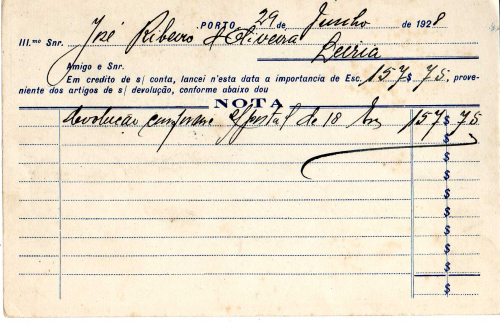 PORTO, 29 de Junho de 1928
Ill.mo Snr. José Ribeiro d'Oliveira
Leiria
Amigo e Snr.
Em credito de s/ conta, lancei n'esta data a importancia de Esc. 157$75, prove-
niente dos artigos de s/ devolução, conforme abaixo dou
NOTA
devolução conforme postal de 18 157$75
$
$
$
$
$
$
$
$
$